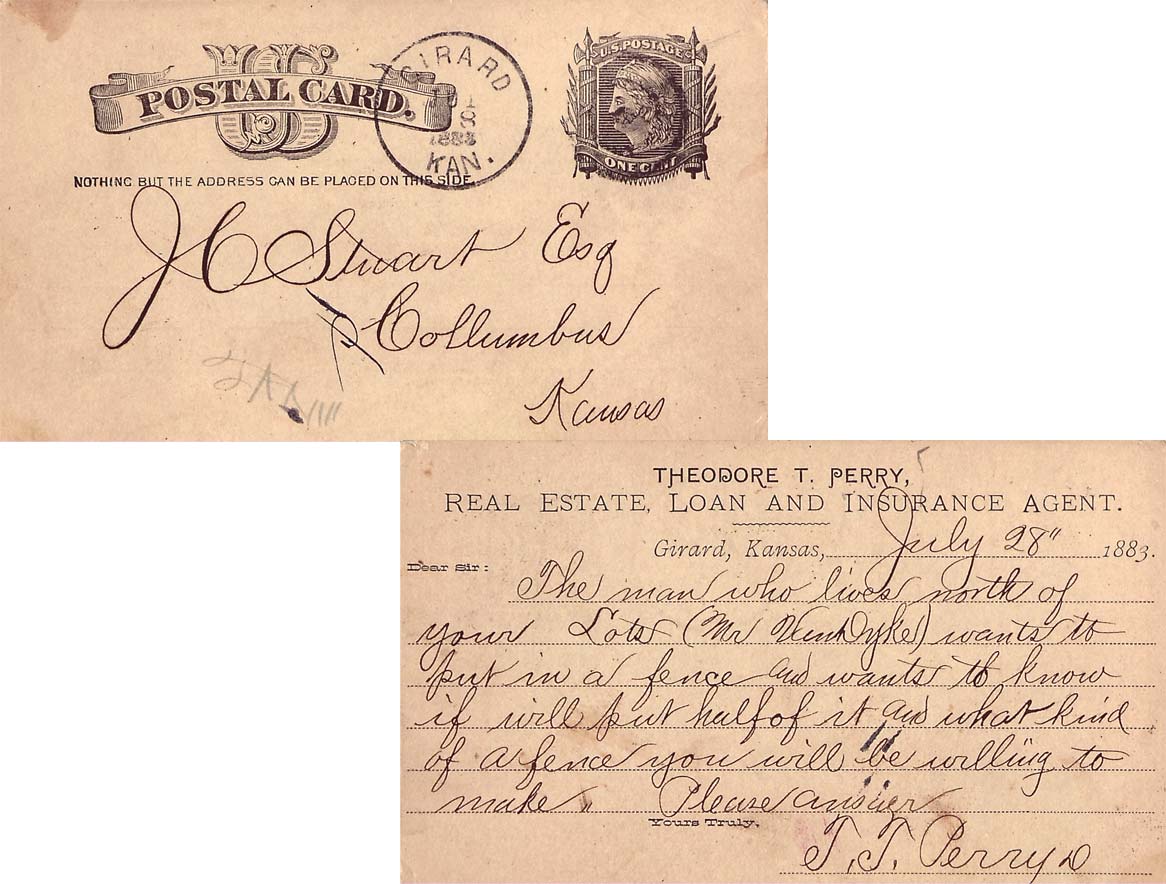 US
POSTAL CARD.
NOTHING BUT THE ADDRESS CAN BE PLACED ON THIS SIDE.
GIRARD
1883
KAN.
U.S. POSTAGE
ONE CENT
J C Stuart Esq
Collumbus
Kansas
THEODORE T. PERRY,
REAL ESTATE, LOAN AND INSURANCE AGENT.
Girard, Kansas, July 28" 1883.
Dear Sir:
The man who lives north of
your Lots (Mr VanDyke) wants to
put in a fence and wants to know
if will put half of it and what kind
of a fence you will be willing to
make. Please answer
Yours Truly,
T. T. Perry